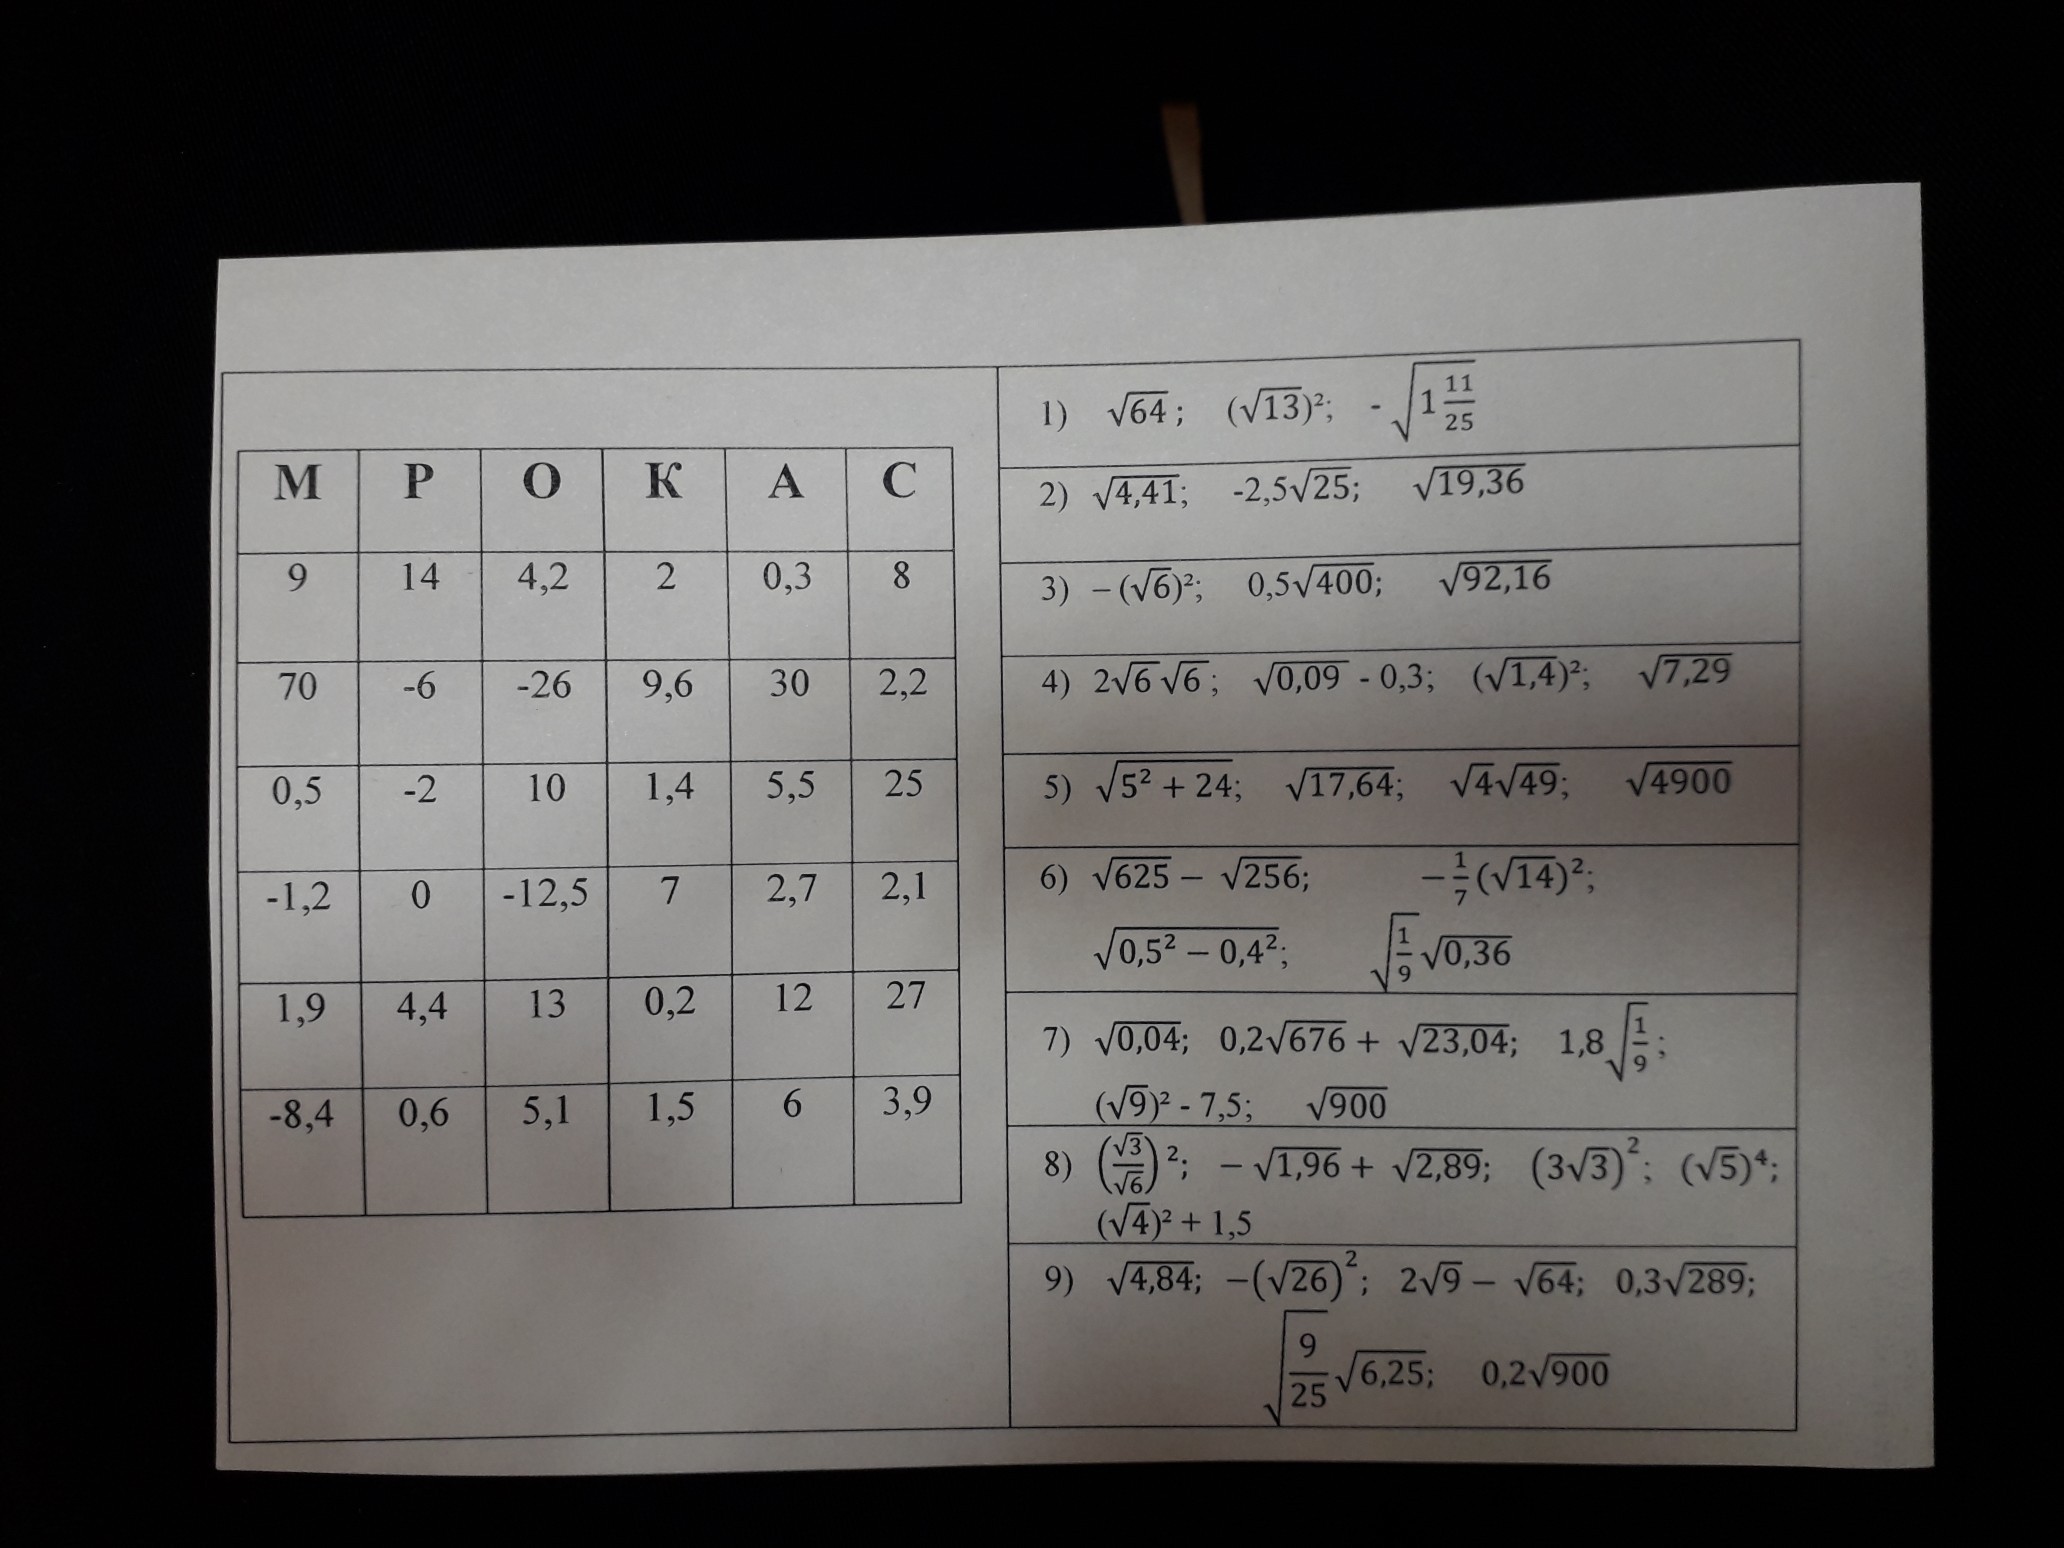 М Р О К А С
9 14 4,2 2 0,3 8
70 -6 -26 9,6 30 2,2
0,5 -2 10 1,4 5,5 25
-1,2 0 -12,5 7 2,7 2,1
1,9 4,4 13 0,2 12 27
-8,4 0,6 5,1 1,5 6 3,9
1) √64; (√13)²; -√(1 11/25)
2) √4,41; -2,5√25; √19,36
3) –(√6)²; 0,5√400; √92,16
4) 2√6√6; √0,09 - 0,3; (√1,4)²; √7,29
5) √(5² + 24); √17,64; √4√49; √4900
6) √625 – √256; –1/7(√14)²;
√(0,5² – 0,4²); √(1/9)√0,36
7) √0,04; 0,2√676 + √23,04; 1,8√(1/9);
(√9)² - 7,5; √900
8) (√3/√6)²; –√1,96 + √2,89; (3√3)²; (√5)⁴;
(√4)² + 1,5
9) √4,84; –(√26)²; 2√9 – √64; 0,3√289;
√(9/25)√6,25; 0,2√900